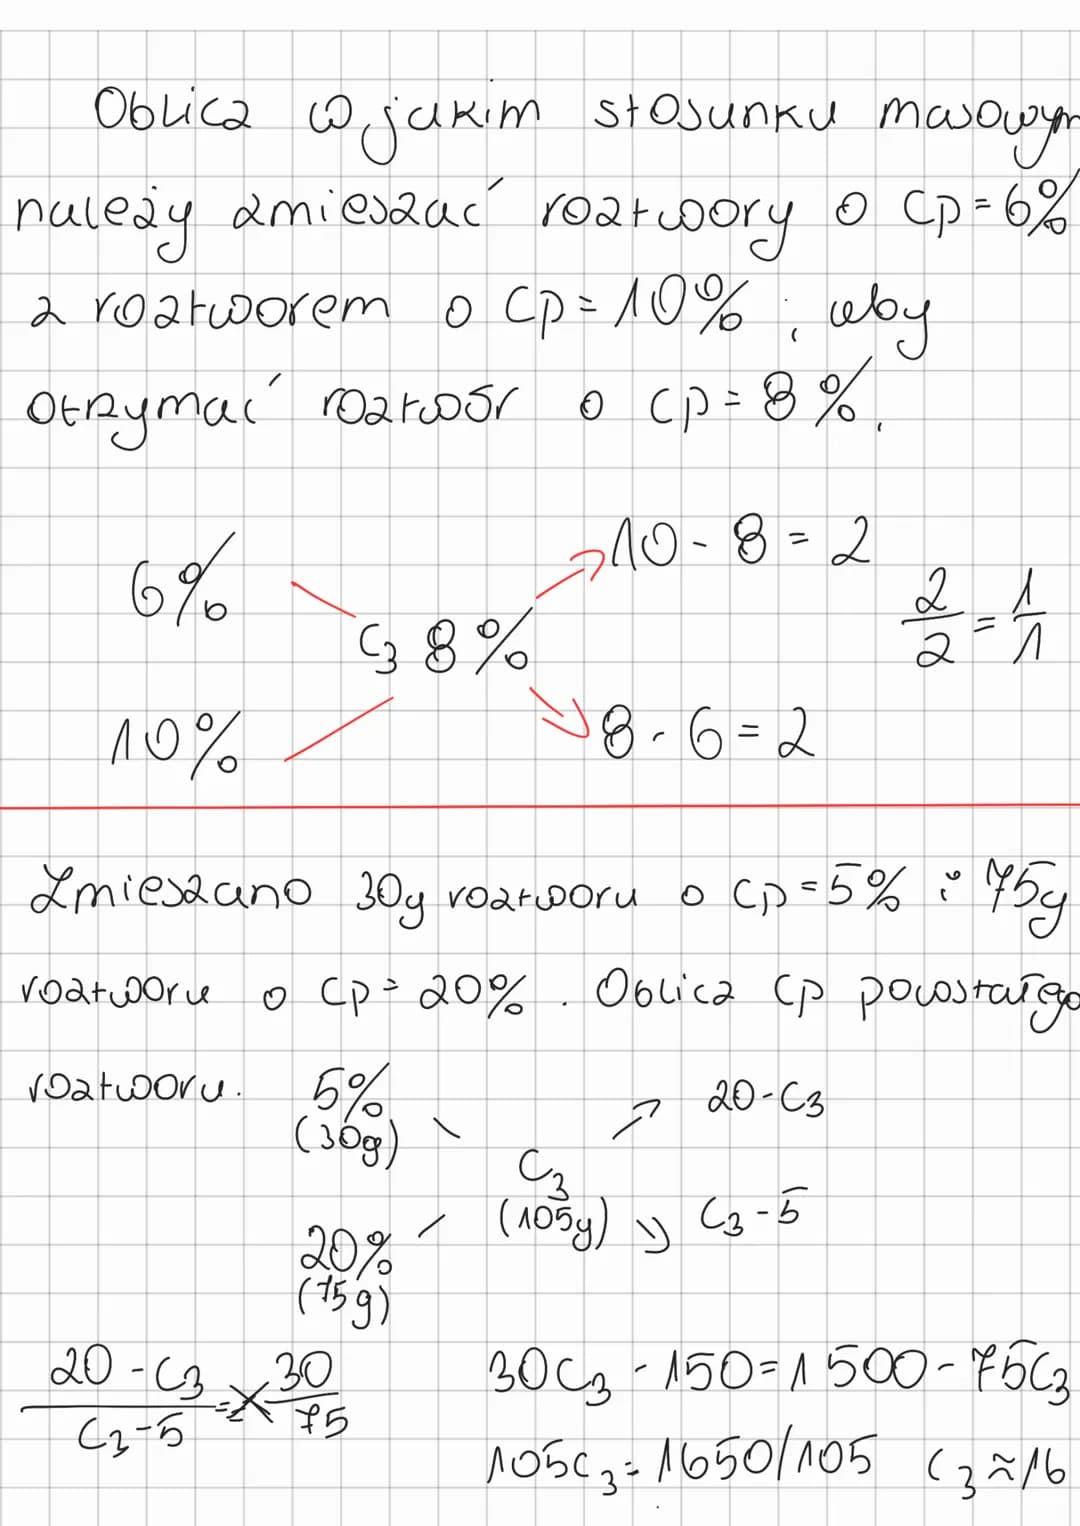 Oblicz w jakim stosunku masowym
należy zmieszać roztwory o Cp=6%
z roztworem o Cp=10%, aby
otrzymać roztwór o Cp=8%.
6% 10-8=2
C3 8% 2/2=1/1
10% 8-6=2
Zmieszano 30g roztworu o Cp=5% i 75g
roztworu o Cp=20%. Oblicz Cp powstałego
roztworu. 5% 20-C3
(30g)
C3
(105g) C3-5
20%
(75g)
20-C3/C3-5=30/75 30C3-150=1500-75C3
105C3=1650/105 C3≈16